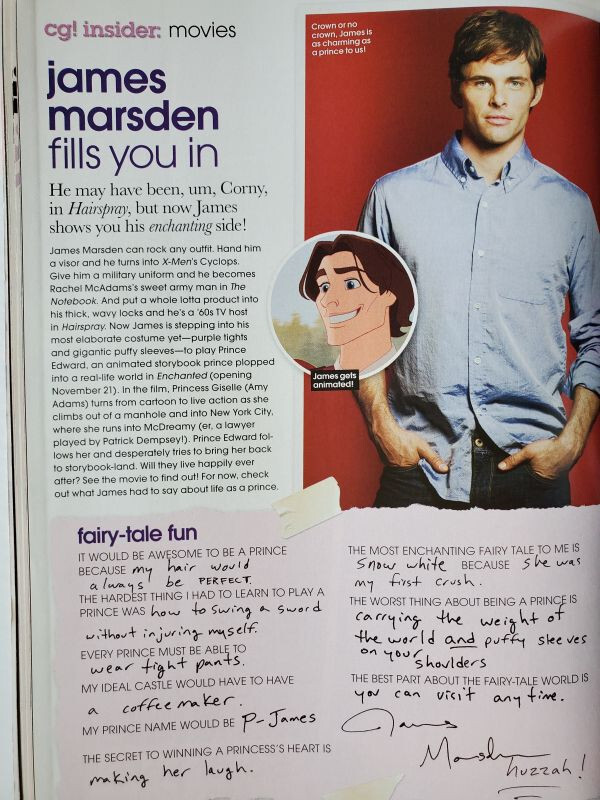 cg! insider: movies
james
marsden
fills you in
He may have been, um, Corny,
in Hairspray, but now James
shows you his enchanting side!
James Marsden can rock any outfit. Hand him
a visor and he turns into X-Men's Cyclops.
Give him a military uniform and he becomes
Rachel McAdams's sweet army man in The
Notebook. And put a whole lotta product into
his thick, wavy locks and he's a '60s TV host
in Hairspray. Now James is stepping into his
most elaborate costume yet—purple tights
and gigantic puffy sleeves—to play Prince
Edward, an animated storybook prince plopped
into a real-life world in Enchanted (opening
November 21). In the film, Princess Giselle (Amy
Adams) turns from cartoon to live action as she
climbs out of a manhole and into New York City,
where she runs into McDreamy (er, a lawyer
played by Patrick Dempsey!). Prince Edward fol-
lows her and desperately tries to bring her back
to storybook-land. Will they live happily ever
after? See the movie to find out! For now, check
out what James had to say about life as a prince.
Crown or no
crown, James is
as charming as
a prince to us!
James gets
animated!
fairy-tale fun
IT WOULD BE AWESOME TO BE A PRINCE
BECAUSE my hair would
always be PERFECT.
THE HARDEST THING I HAD TO LEARN TO PLAY A
PRINCE WAS how to swing a sword
without injuring myself.
EVERY PRINCE MUST BE ABLE TO
wear tight pants.
MY IDEAL CASTLE WOULD HAVE TO HAVE
a coffee maker.
MY PRINCE NAME WOULD BE P-James
THE SECRET TO WINNING A PRINCESS'S HEART IS
making her laugh.
THE MOST ENCHANTING FAIRY TALE TO ME IS
Snow white BECAUSE she was
my first crush.
THE WORST THING ABOUT BEING A PRINCE IS
carrying the weight of
the world and puffy sleeves
on your shoulders
THE BEST PART ABOUT THE FAIRY-TALE WORLD IS
you can visit anytime.
James
Marsden
huzzah!